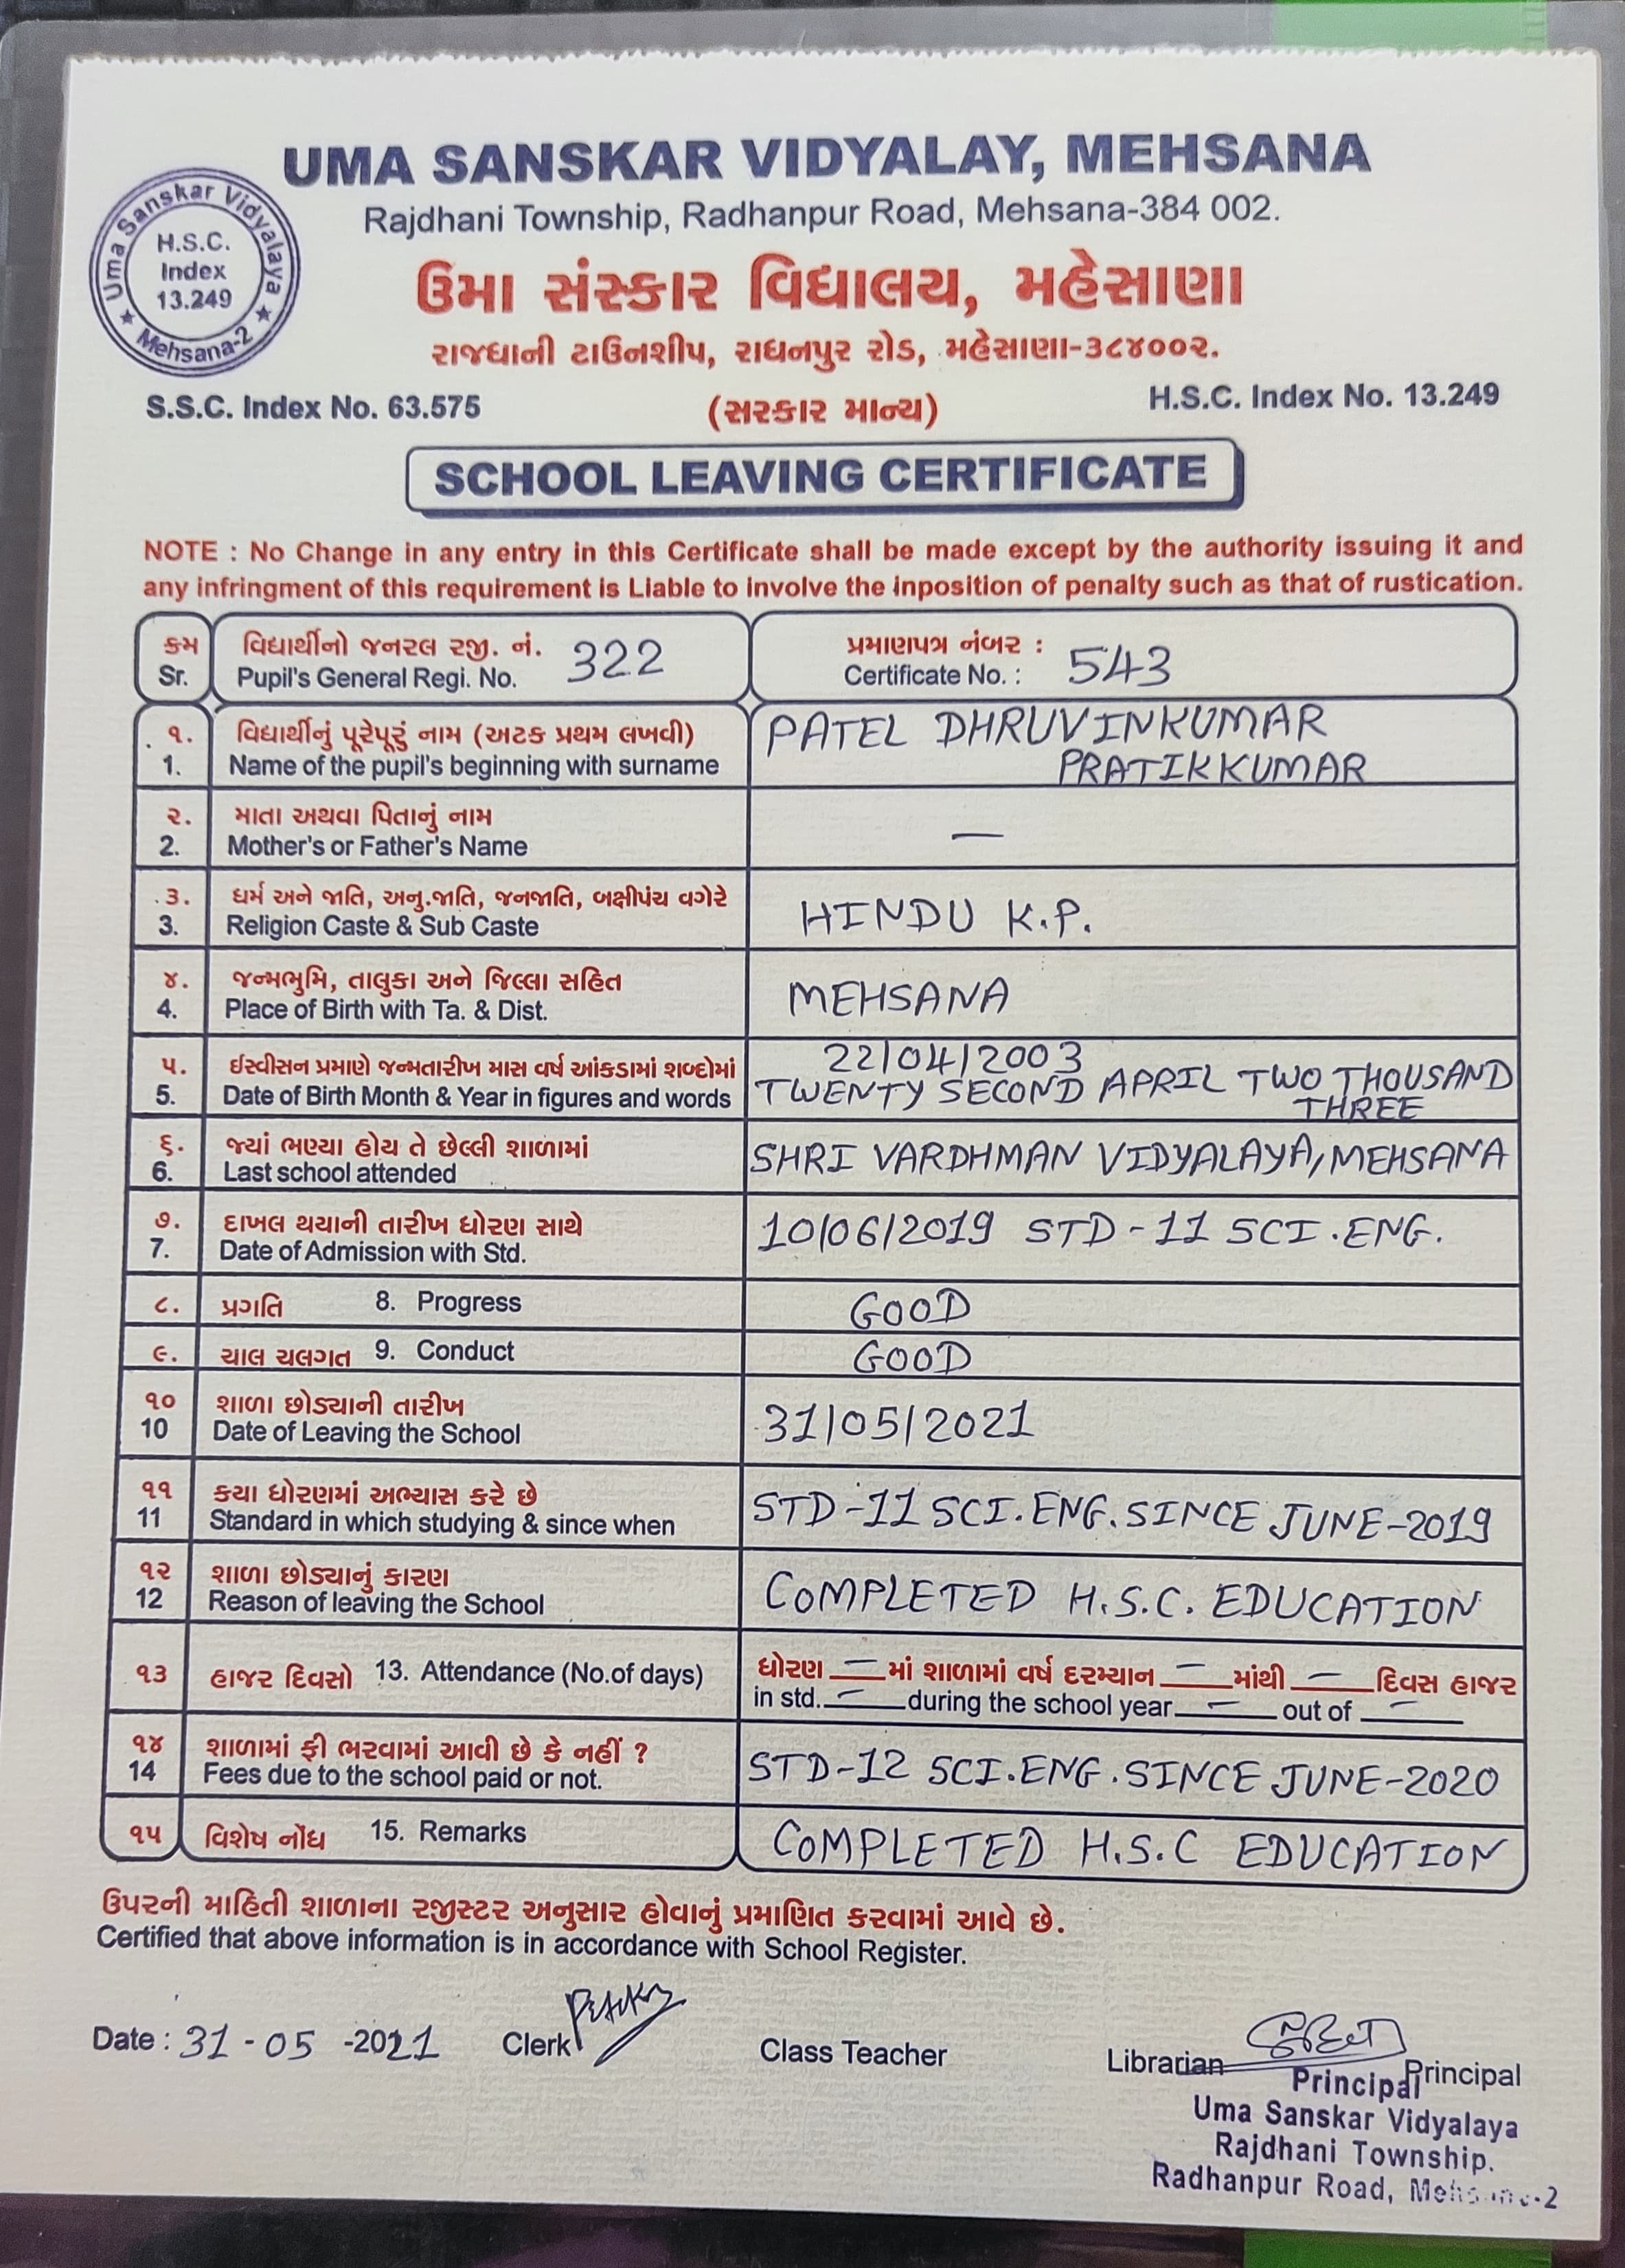 UMA SANSKAR VIDYALAY, MEHSANA
Rajdhani Township, Radhanpur Road, Mehsana-384 002.
Uma Sanskar Vidyalaya
H.S.C.
Index
13.249
★ Mehsana-2 ★
ઉમા સંસ્કાર વિદ્યાલય, મહેસાણા
રાજધાની ટાઉનશીપ, રાધનપુર રોડ, મહેસાણા-૩૮૪૦૦૨.
S.S.C. Index No. 63.575 (સરકાર માન્ય) H.S.C. Index No. 13.249
SCHOOL LEAVING CERTIFICATE
NOTE : No Change in any entry in this Certificate shall be made except by the authority issuing it and
any infringment of this requirement is Liable to involve the inposition of penalty such as that of rustication.
ક્રમ વિદ્યાર્થીનો જનરલ રજી. નં. 322 પ્રમાણપત્ર નંબર :
Sr. Pupil's General Regi. No. Certificate No. : 543
૧. વિદ્યાર્થીનું પૂરેપૂરું નામ (અટક પ્રથમ લખવી) PATEL DHRUVINKUMAR
1. Name of the pupil's beginning with surname PRATIKKUMAR
૨. માતા અથવા પિતાનું નામ —
2. Mother's or Father's Name
૩. ધર્મ અને જાતિ, અનુ.જાતિ, જનજાતિ, બક્ષીપંચ વગેરે
3. Religion Caste & Sub Caste HINDU K.P.
૪. જન્મભુમિ, તાલુકા અને જિલ્લા સહિત
4. Place of Birth with Ta. & Dist. MEHSANA
22/04/2003
૫. ઈસ્વીસન પ્રમાણે જન્મતારીખ માસ વર્ષ આંકડામાં શબ્દોમાં
5. Date of Birth Month & Year in figures and words TWENTY SECOND APRIL TWO THOUSAND
THREE
૬. જ્યાં ભણ્યા હોય તે છેલ્લી શાળામાં
6. Last school attended SHRI VARDHMAN VIDYALAYA, MEHSANA
૭. દાખલ થયાની તારીખ ધોરણ સાથે
7. Date of Admission with Std. 10/06/2019 STD-11 SCI.ENG.
૮. પ્રગતિ 8. Progress GOOD
૯. ચાલ ચલગત 9. Conduct GOOD
૧૦ શાળા છોડ્યાની તારીખ
10 Date of Leaving the School 31/05/2021
૧૧ કયા ધોરણમાં અભ્યાસ કરે છે
11 Standard in which studying & since when STD-11 SCI.ENG. SINCE JUNE-2019
૧૨ શાળા છોડ્યાનું કારણ
12 Reason of leaving the School COMPLETED H.S.C. EDUCATION
૧૩ હાજર દિવસો 13. Attendance (No.of days) ધોરણ — માં શાળામાં વર્ષ દરમ્યાન — માંથી — દિવસ હાજર
in std. — during the school year — out of —
૧૪ શાળામાં ફી ભરવામાં આવી છે કે નહીં ?
14 Fees due to the school paid or not. STD-12 SCI.ENG. SINCE JUNE-2020
૧૫ વિશેષ નોંધ 15. Remarks COMPLETED H.S.C EDUCATION
ઉપરની માહિતી શાળાના રજીસ્ટર અનુસાર હોવાનું પ્રમાણિત કરવામાં આવે છે.
Certified that above information is in accordance with School Register.
Date : 31-05-2021 Clerk Class Teacher Librarian Principal
Principal
Uma Sanskar Vidyalaya
Rajdhani Township.
Radhanpur Road, Mehsana-2